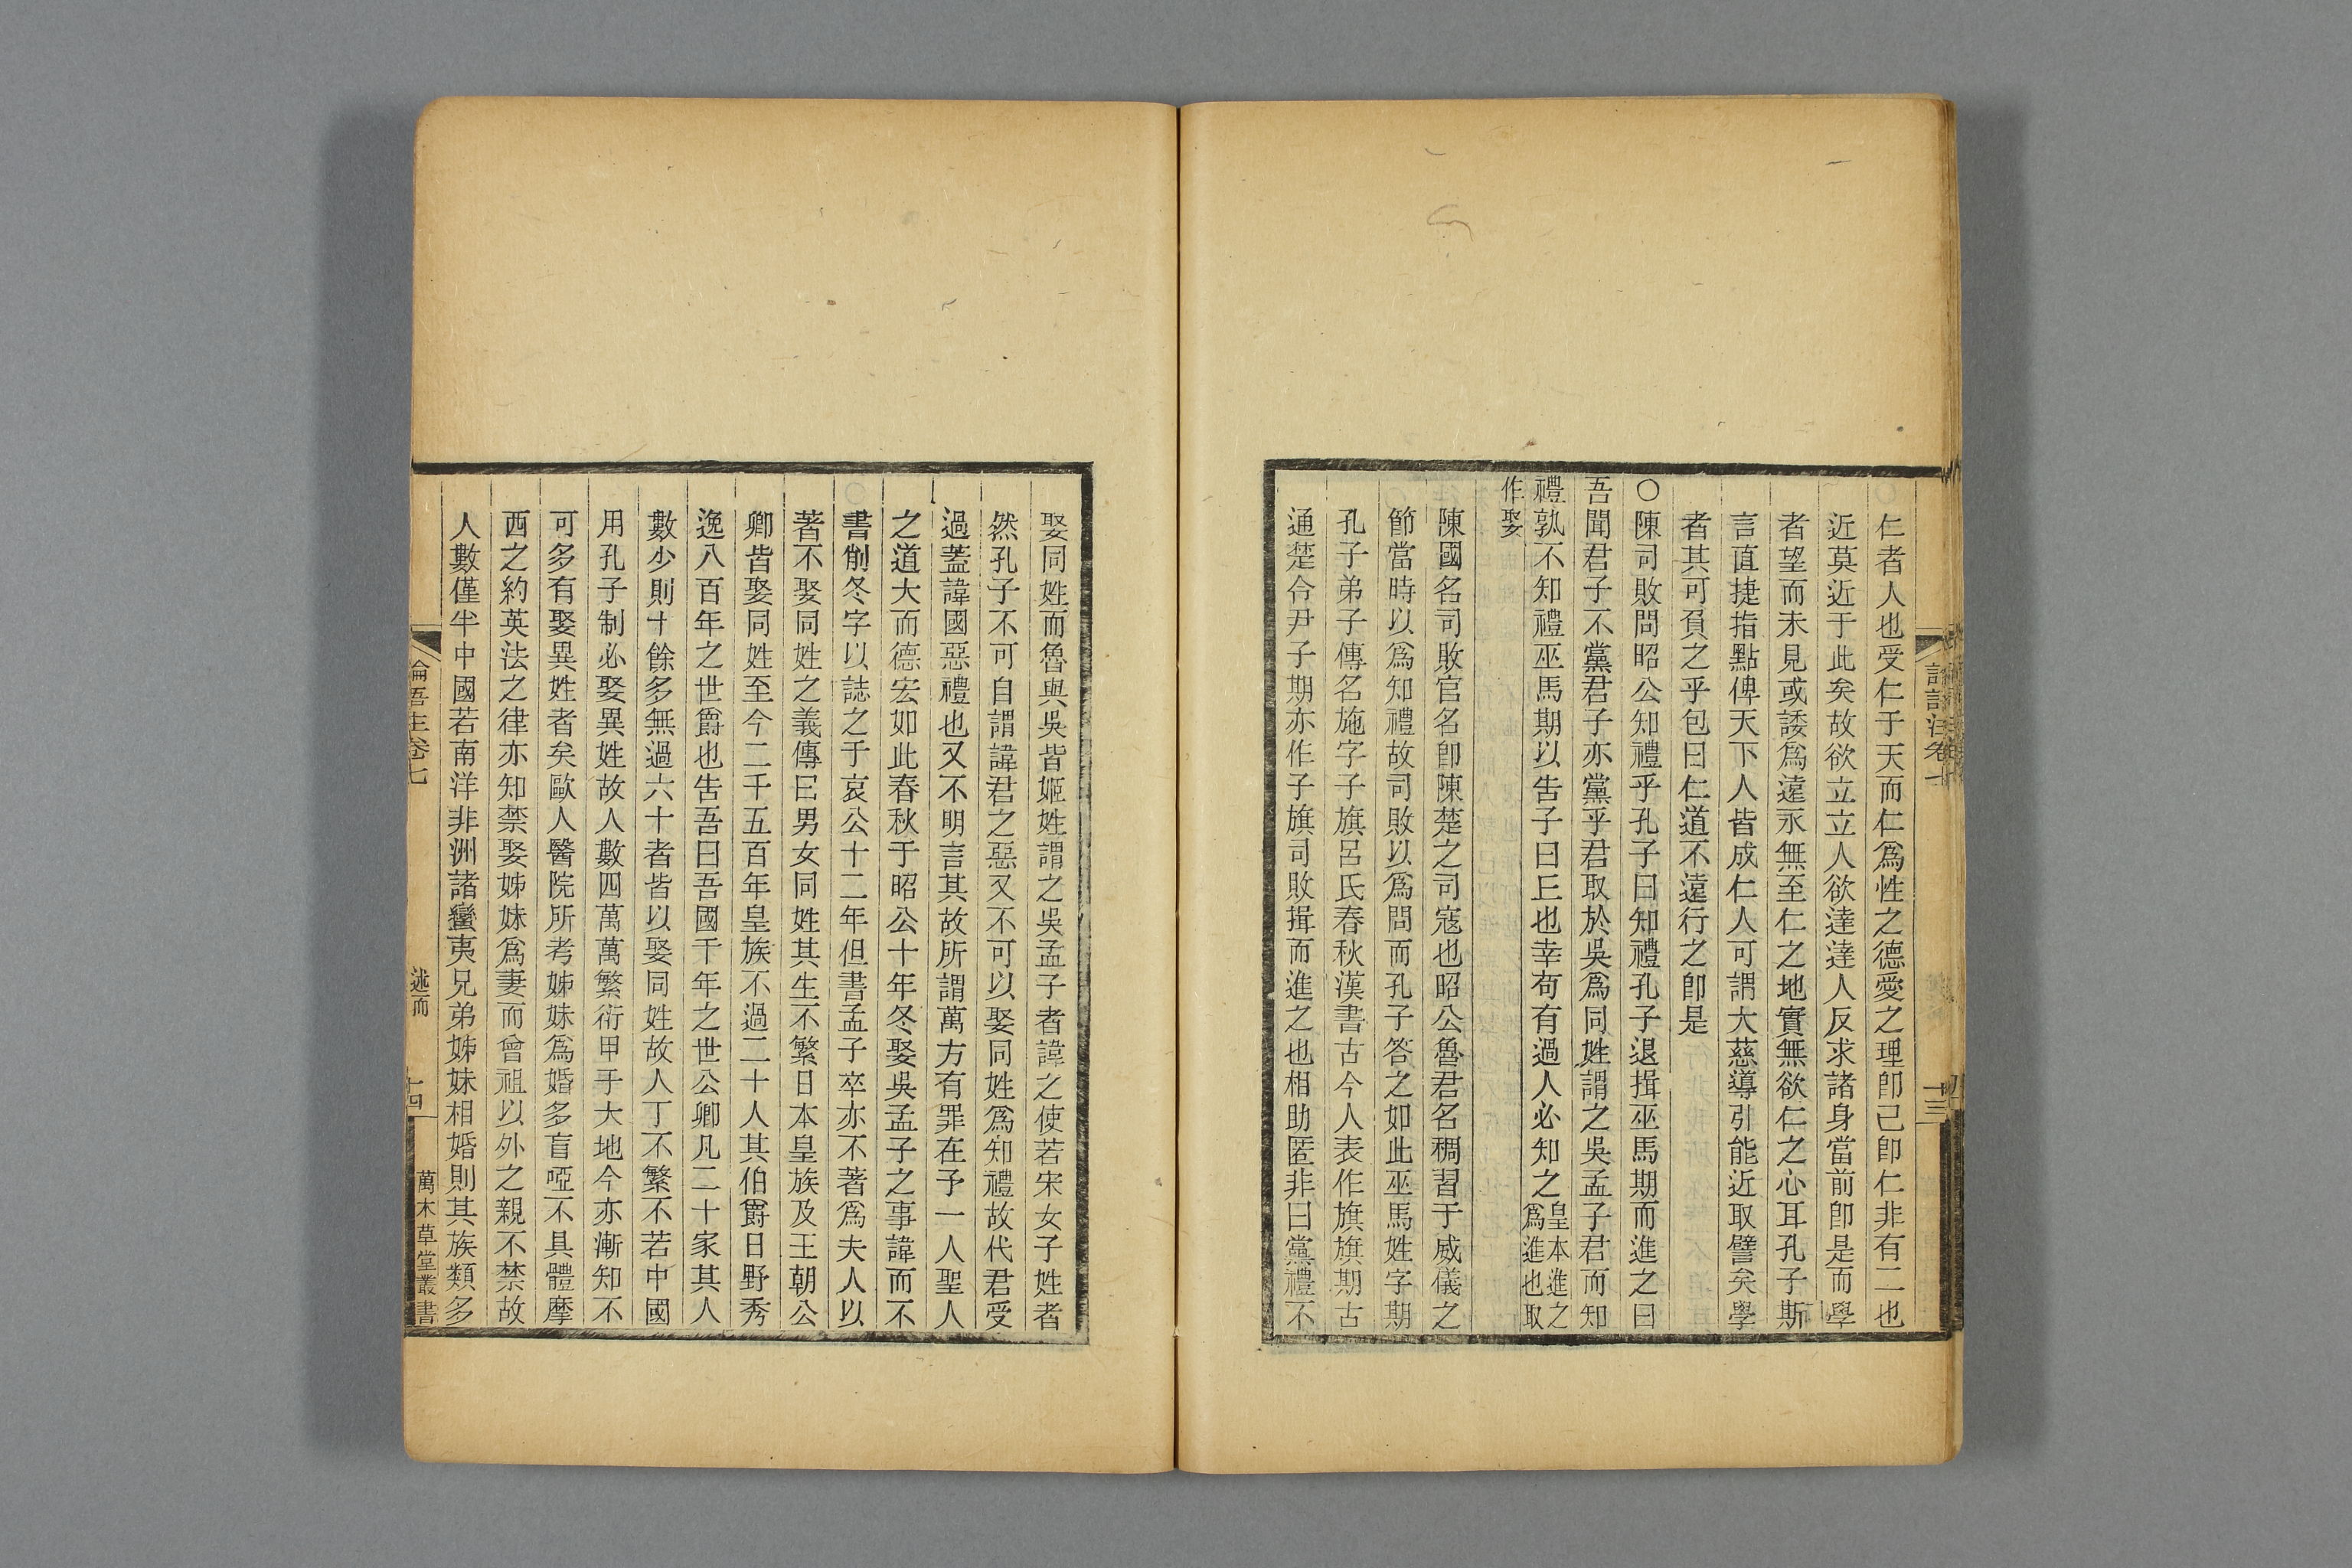 仁者人也受仁于天而仁爲性之德愛之理卽己卽仁非有二也
近莫近于此矣故欲立立人欲達達人反求諸身當前卽是而學
者望而未見或諉爲遠永無至仁之地實無欲仁之心耳孔子斯
言直捷指點俾天下人皆成仁人可謂大慈導引能近取譬矣學
者其可負之乎包曰仁道不遠行之卽是
〇陳司敗問昭公知禮乎孔子曰知禮孔子退揖巫馬期而進之曰
吾聞君子不黨君子亦黨乎君取於吳爲同姓謂之吳孟子君而知
禮孰不知禮巫馬期以告子曰丘也幸苟有過人必知之皇本進之
爲進也取
作娶
陳國名司敗官名卽陳楚之司寇也昭公魯君名稠習于威儀之
節當時以爲知禮故司敗以爲問而孔子答之如此巫馬姓字期
孔子弟子傳名施字子旗呂氏春秋漢書古今人表作旗旗期古
通楚令尹子期亦作子旗司敗揖而進之也相助匿非曰黨禮不
十三
娶同姓而魯與吳皆姬姓謂之吳孟子者諱之使若宋女子姓者
然孔子不可自謂諱君之惡又不可以娶同姓爲知禮故代君受
過蓋諱國惡禮也又不明言其故所謂萬方有罪在予一人聖人
之道大而德宏如此春秋于昭公十年冬娶吳孟子之事諱而不
書削冬字以誌之于哀公十二年但書孟子卒亦不著爲夫人以
著不娶同姓之義傳曰男女同姓其生不繁日本皇族及王朝公
卿皆娶同姓至今二千五百年皇族不過二十人其伯爵日野秀
逸八百年之世爵也告吾曰吾國千年之世公卿凡二十家其人
數少則十餘多無過六十者皆以娶同姓故人丁不繁不若中國
用孔子制必娶異姓故人數四萬萬繁衍甲于大地今亦漸知不
可多有娶異姓者矣歐人醫院所考姊妹爲婚多盲啞不具體摩
西之約英法之律亦知禁娶姊妹爲妻而曾祖以外之親不禁故
人數僅半中國若南洋非洲諸蠻夷兄弟姊妹相婚則其族類多
論語注卷七
述而
十四
萬木草堂叢書